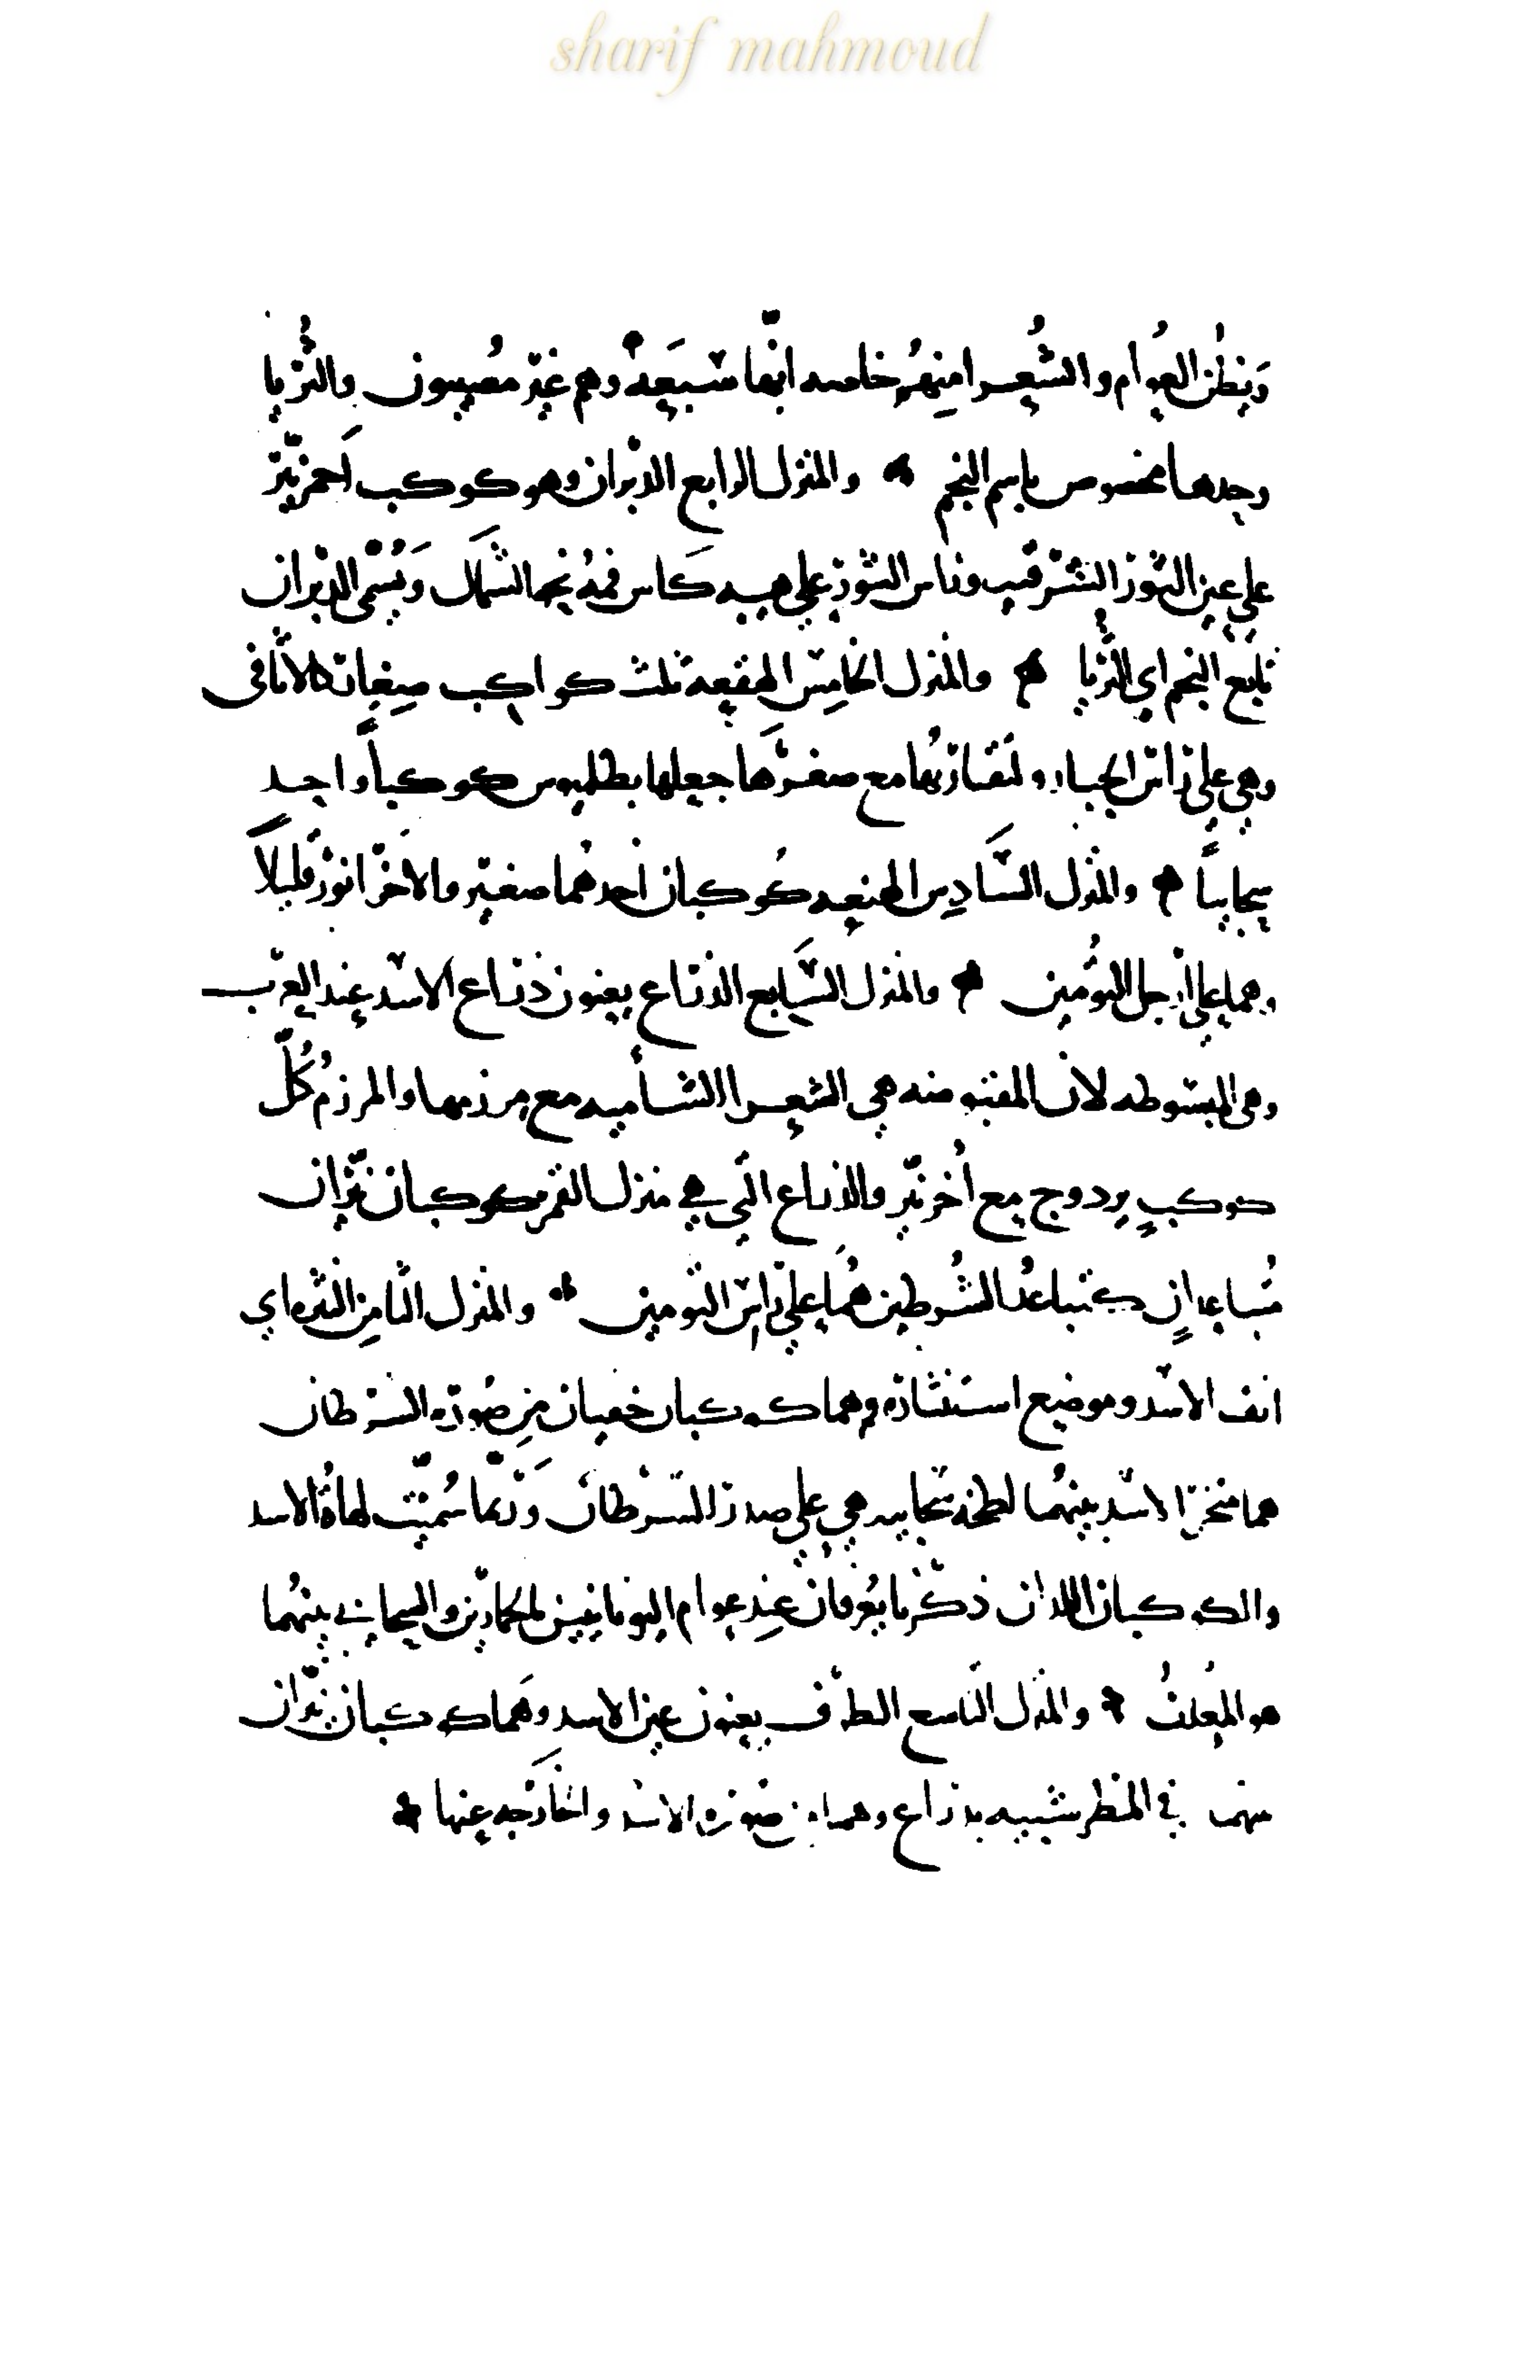 sharif mahmoud
وَيظُن العوام والشُعرا منهُم خاصه انّها سَبعَهٌ وهم غير مُصيبون والثُريا
وحدها مخصوص باسم النجم والمنزل الرابع الدبران وهو كوكب احمر نيّر
علي عين الثور الشرقيه وراس الثور علي هيه كاس فمهُ نحو الشمال وَيُسَمّى الدبران
تابع النجم اي الثُريا والمنزل الخامِس الهقعه ثلث كواكب صغار كالاثافى
وهي علي راس الجبار ولتقاربُها مع صغرها جعلها بطلميوس كوكباً واحد
سحابياً والمنزل السَّادِس الهنعه كُوكبان أحدهُما صغير والاخر انورُ قليلاً
وهما علي ارجل التؤمين والمنزل السَّابع الذراع يعنون ذراع الاسد عند العرب
وهي المبسوطه لان المقبوضه هي الشعرا الشأميه مع مرزمها والمرزمُ كُلّ
كوكبٍ يزدوج مع أُخر نيّر والذراع الّتي هي منزل القمر كوكبان نيّران
مُتباعدانِ كتباعُد الشُرطين هُمَا علي راس التؤمين والمنزل الثامِن النثره اي
انف الاسد وموضع استنثاره وهما كوكبان خفيان مِن صُورَه السَرطان
هما منخرا الاسد بينهُما لطخه سحابيه هي علي صدر السَرطان وَربّما سُمّيت لهاةُ الاسد
والكوكبان اللذان ذكرنا يُعرفان عِند عوام اليونانيين بالحمارين والسحابي بينهُما
هو المعلفُ والمنزل التاسع الطرف يعنون عين الاسد وهَما كوكبان نيّران
بينهما في المنظر شبيه بذراع وهما من صُورَه الاسد والخارَجه عنها